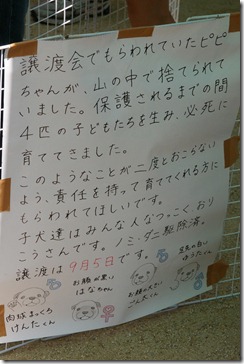 譲渡会でもらわれていたピピ
ちゃんが、山の中で捨てられて
いました。保護されるまでの間
4匹の子どもたちを生み、必死に
育ててきました。
このようなことが二度とおこらない
よう、責任を持って育ててくれる方に
もらわれてほしいです。
子犬達はみんな人なつっこく おり
こうさんです。ノミ・ダニ駆除済。
譲渡は9月5日です。
肉球まっくろ
けんたくん
お顔が黒い
はなちゃん
お顔が大きい
げん太くん
足先の白い
ゆうたくん